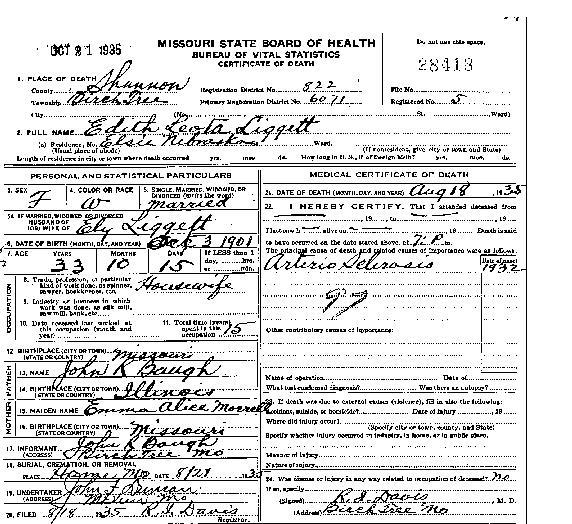 OCT 21 1935
MISSOURI STATE BOARD OF HEALTH
BUREAU OF VITAL STATISTICS
CERTIFICATE OF DEATH
Do not use this space.
28413
1. PLACE OF DEATH
County Shannon Registration District No. 822 File No.
Township Birch Tree Primary Registration District No. 6071 Registered No. 5
City (No. St. Ward)
2. FULL NAME Edith Leota Liggett
(a) Residence, No. Ward.
(Usual place of abode) (If nonresident, give city or town and State)
Length of residence in city or town where death occurred yrs. mos. ds. How long in U. S., if of foreign birth? yrs. mos. ds.
PERSONAL AND STATISTICAL PARTICULARS
3. SEX F
4. COLOR OR RACE W
5. SINGLE, MARRIED, WIDOWED, OR DIVORCED (write the word) Married
5A. IF MARRIED, WIDOWED OR DIVORCED
HUSBAND OF
(OR) WIFE OF Ely Liggett
6. DATE OF BIRTH (MONTH, DAY, AND YEAR) Oct 3 1901
7. AGE YEARS 33 MONTHS 10 DAYS 15 If LESS than 1 day, hrs. or min.
OCCUPATION
8. Trade, profession, or particular kind of work done, as spinner, sawyer, bookkeeper, etc. Housewife
9. Industry or business in which work was done, as silk mill, saw mill, bank, etc.
10. Date deceased last worked at this occupation (month and year)
11. Total time (years) spent in this occupation 15
12. BIRTHPLACE (CITY OR TOWN) Missouri
(STATE OR COUNTRY)
FATHER
13. NAME John R Baugh
14. BIRTHPLACE (CITY OR TOWN) Illinois
(STATE OR COUNTRY)
MOTHER
15. MAIDEN NAME Emma Alice
16. BIRTHPLACE (CITY OR TOWN) Missouri
(STATE OR COUNTRY)
17. INFORMANT John R Baugh
(ADDRESS) Birch Tree Mo
18. BURIAL, CREMATION, OR REMOVAL
PLACE Mo DATE 8/21 1935
19. UNDERTAKER John F Duncan
(ADDRESS) Mo
20. FILED 8/18 1935 R. S. Davis
Registrar.
MEDICAL CERTIFICATE OF DEATH
21. DATE OF DEATH (MONTH, DAY, AND YEAR) Aug 18 1935
22. I HEREBY CERTIFY, That I attended deceased from
19 to 19
I last saw h alive on 19 Death is said
to have occurred on the date stated above, at 7 P. m.
The principal cause of death and related causes of importance were as follows:
Date of onset
Arterio Sclerosis 1932
Other contributory causes of importance:
Name of operation Date of
What test confirmed diagnosis? Was there an autopsy?
23. If death was due to external causes (violence), fill in also the following:
Accident, suicide, or homicide? Date of injury 19
Where did injury occur?
(Specify city or town, county, and State)
Specify whether injury occurred in industry, in home, or in public place.
Manner of injury
Nature of injury
24. Was disease or injury in any way related to occupation of deceased? No
If so, specify
(Signed) R. S. Davis, M. D.
(Address) Birch Tree Mo